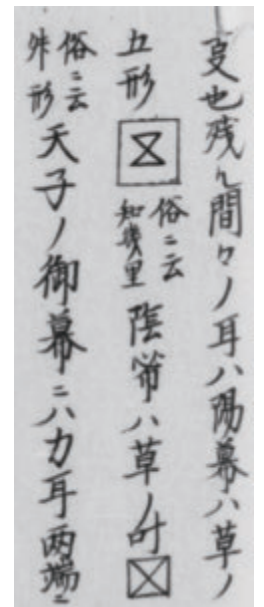 叓也残ル間々ノ耳ハ陽幕ハ草ノ
五形 俗ニ云知幾里 陰幕ハ草ノ叶
俗ニ云舛形 天子ノ御幕ニハ力耳両端ニ